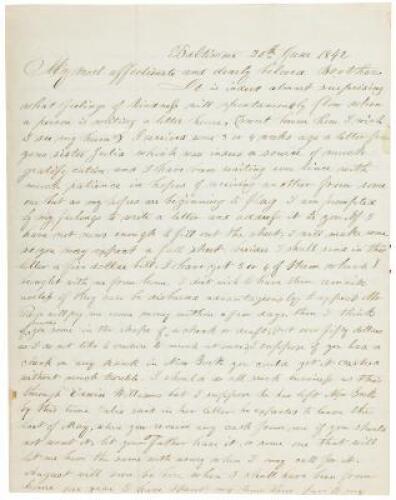 Baltimore 20th June 1842
My most affectionate and dearly beloved Brother
It is indeed almost surprising
what feelings of kindness will spontaneously flow when
a person is writing a letter home,
I received some 3 or 4 weeks ago a letter from
your sister Julia which was indeed a source of much
gratification, and I have been waiting ever since with
much patience in hopes of receiving another from some
one but as my hopes are beginning to flag I am prompted
by my feelings to write a letter and address it to you. If I
have not news enough to fill out the sheet, I will make some
so you may expect a full sheet besides I shall send in this
letter a five dollar bill, I have got 3 or 4 of them which I
brought with me from home. I dont wish to have them remain
if they can be disbursed advantageously I expect Mr
will pay me some money within a few days, then I think
you some in the shape of a check or draft, put over fifty dollars
as I do not like to venture to much at once. I suppose if you had a
check on any bank in New York you could get it cashed
without much trouble. I should as
through Edwin Williams but I suppose he has left New York
by this time Julia said in her letter he expected to leave the
last of May. When you receive any cash from me if you should
not want it let your Father have it, or some one that will
let me have the same with when I may call for it.
August will soon be here when I shall have been from
home one year I have spent my time here